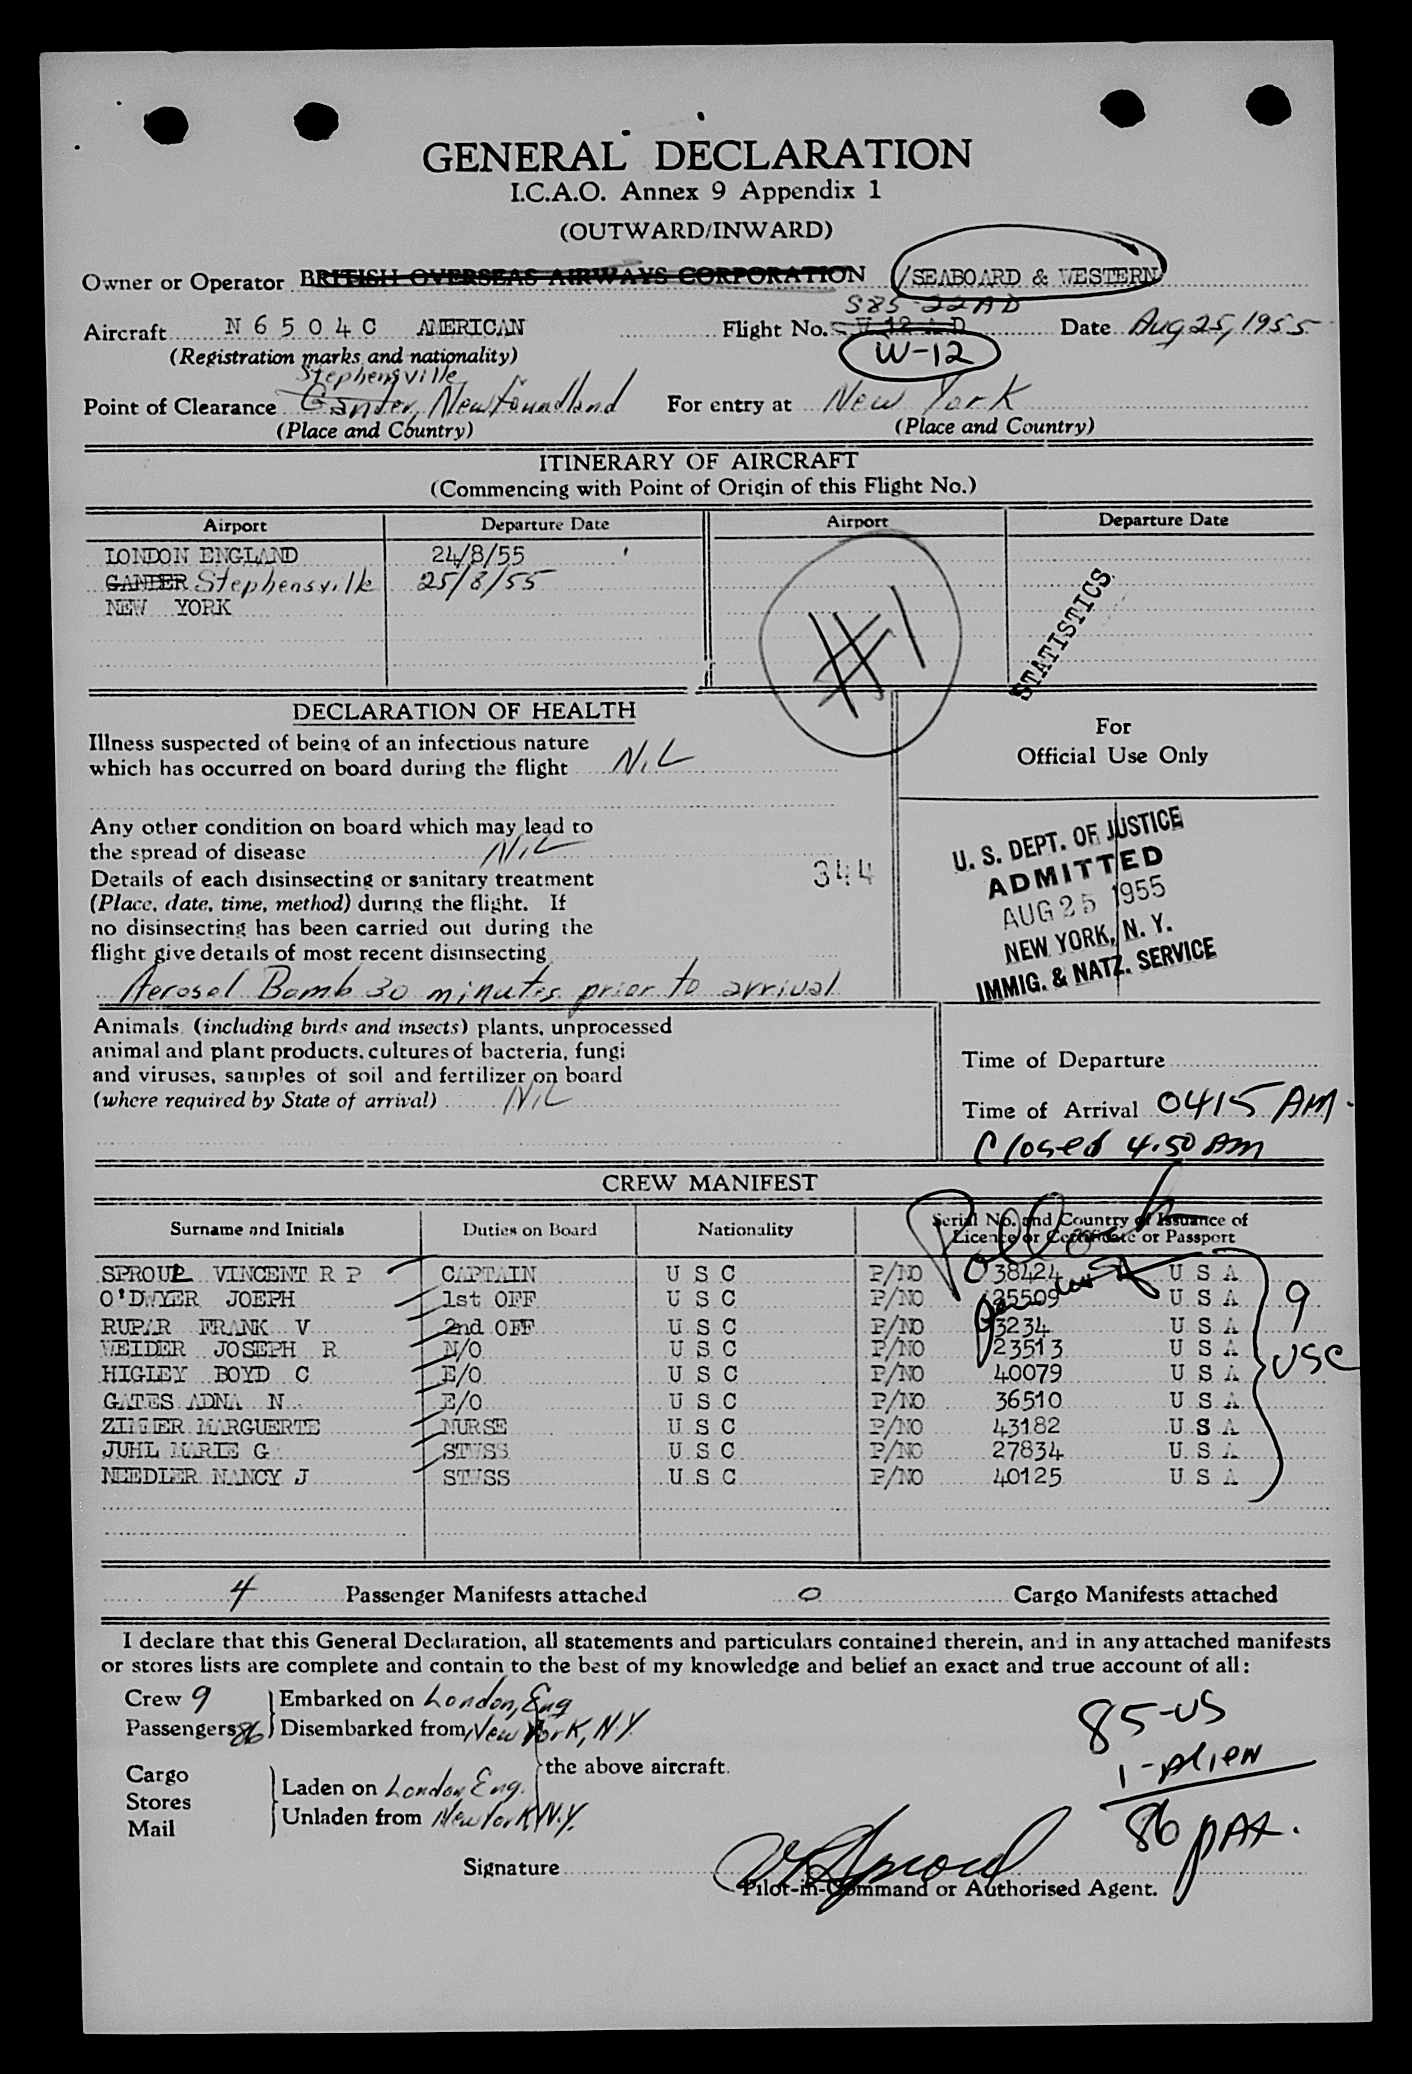 GENERAL DECLARATION
I.C.A.O. Annex 9 Appendix 1
(OUTWARD/INWARD)
Owner or Operator BRITISH OVERSEAS AIRWAYS CORPORATION /SEABOARD & WESTERN
S85-22AD
Aircraft N 6 5 0 4 C AMERICAN Flight No. Date Aug 25, 1955
(Registration marks and nationality) W-12
Stephensville
Point of Clearance Gander, Newfoundland For entry at New York
(Place and Country) (Place and Country)
ITINERARY OF AIRCRAFT
(Commencing with Point of Origin of this Flight No.)
Airport Departure Date Airport Departure Date
LONDON ENGLAND 24/8/55
GANDER Stephensville 25/8/55
NEW YORK
#1
STATISTICS
DECLARATION OF HEALTH
Illness suspected of being of an infectious nature
which has occurred on board during the flight NiL
For
Official Use Only
Any other condition on board which may lead to
the spread of disease NiL
344
Details of each disinsecting or sanitary treatment
(Place, date, time, method) during the flight. If
no disinsecting has been carried out during the
flight give details of most recent disinsecting
Aerosol Bomb 30 minutes prior to arrival
U. S. DEPT. OF JUSTICE
ADMITTED
AUG 25 1955
NEW YORK, N. Y.
IMMIG. & NATZ. SERVICE
Animals (including birds and insects) plants, unprocessed
animal and plant products, cultures of bacteria, fungi
and viruses, samples of soil and fertilizer on board
(where required by State of arrival) NiL
Time of Departure
Time of Arrival 0415 AM.
Closed 4.50 AM
CREW MANIFEST
Surname and Initials Duties on Board Nationality Serial No. and Country of Issuance of
Licence or Certificate or Passport
Pollock
SPROUL VINCENT R P CAPTAIN U S C P/NO 38424 U S A
O'DWYER JOEPH 1st OFF U S C P/NO 25509 U S A
RUPAR FRANK V 2nd OFF U S C P/NO 3234 U S A
WEIDER JOSEPH R N/O U S C P/NO 23513 U S A
HIGLEY BOYD C E/O U S C P/NO 40079 U S A
GATES ADNA N E/O U S C P/NO 36510 U S A
MARGUERTE NURSE U S C P/NO 43182 U S A
JUHL MARIE G STWSS U S C P/NO 27834 U S A
NEEDLER NANCY J STWSS U S C P/NO 40125 U S A
9
USC
4 Passenger Manifests attached 0 Cargo Manifests attached
I declare that this General Declaration, all statements and particulars contained therein, and in any attached manifests
or stores lists are complete and contain to the best of my knowledge and belief an exact and true account of all:
Crew 9 Embarked on London, Eng
Passengers 86 Disembarked from New York, N.Y.
the above aircraft.
Cargo
Stores
Mail
Laden on London Eng.
Unladen from New York N.Y.
85-US
1-Alien
86 PAX.
Signature
Pilot-in-Command or Authorised Agent.